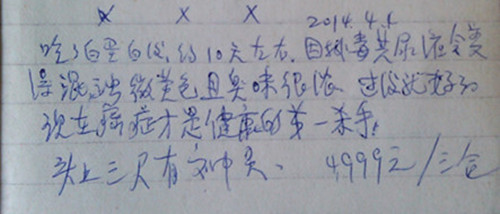 x x x 2014.4.1
吃了白蛋白后,约10天左右.因排毒其尿液会变
浑浊出微黄色且臭味很浓 过后就好了
现在癌症才是健康的第一杀手.
头上三尺有神灵. 4999元/三盒